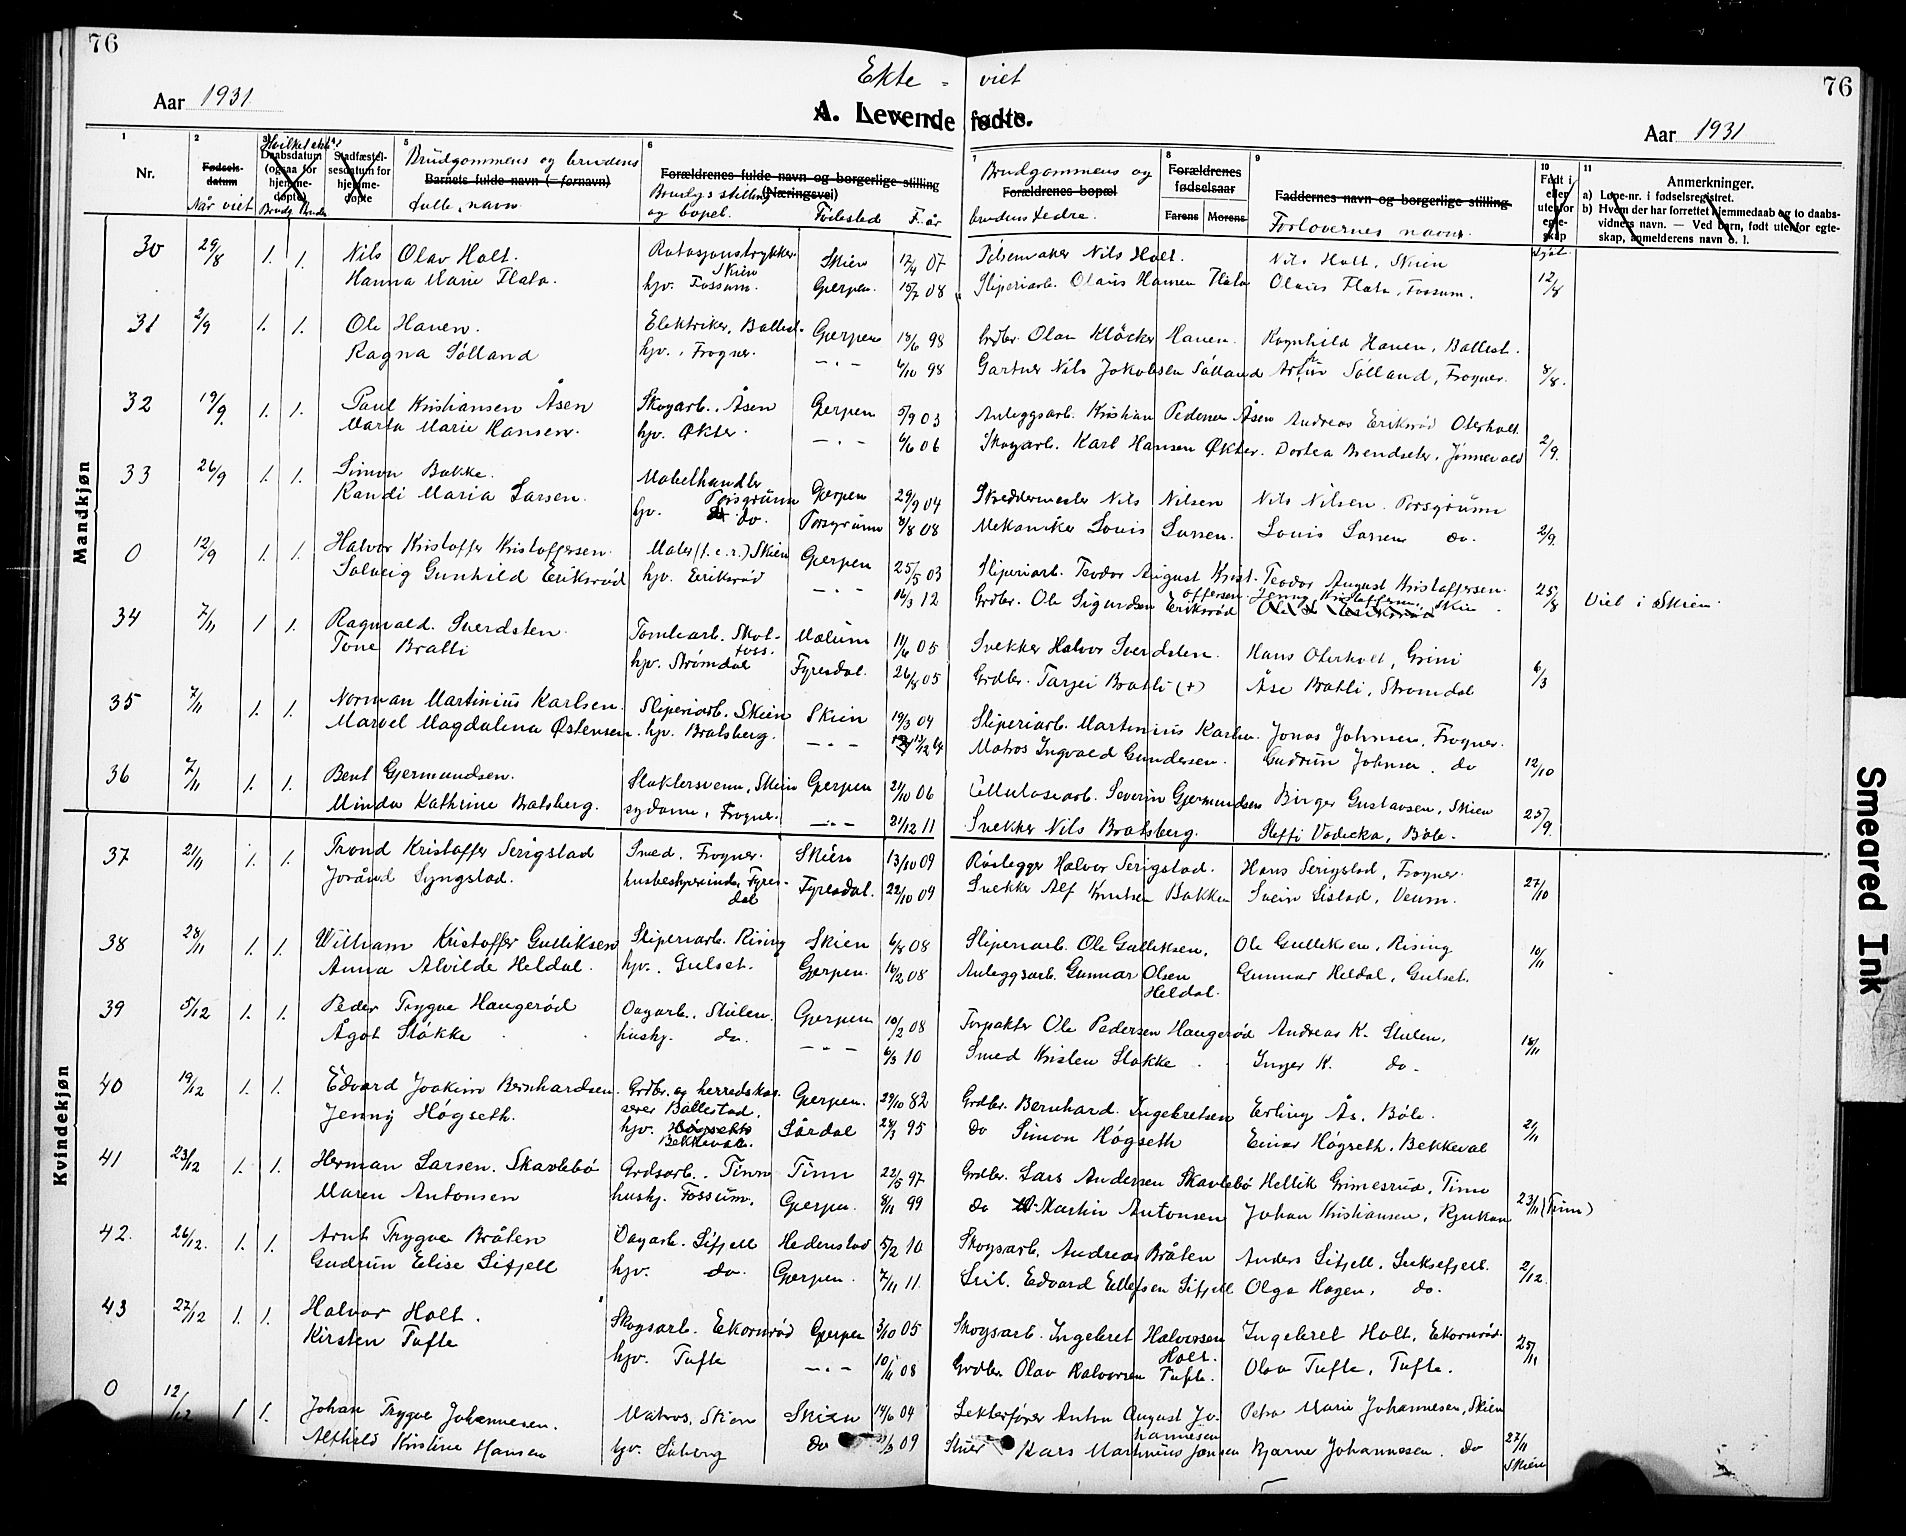 76
76
Ekte - viet
Aar 1931
A. Levende fødte.
Aar 1931
1
Nr.
2
Fødsels-datum
Når viet
3
Hvilket ekt.
Daabsdatum (ogsaa for hjemme-døpte)
Brudg. Brud
Stadfæstel-sesdatum for hjemme-døpte
5
Brudgommens og brudens
Barnets fulde navn (= fornavn)
fulle navn
6
Forældrenes fulde navn og borgerlige stilling (Næringsvei)
Brudg.s stilling og bopel.
Fødested F. år
7
Brudgommens og
Forældrenes bopæl
brudens fedre.
8
Forældrenes fødselsaar
Farens Morens
9
Faddernes navn og borgerlige stilling
Forlovernes navn.
10
Født i eller utenfor egte-skap
Lyst
11
Anmerkninger.
a) Løpe-nr. i fødselsregistret.
b) Hvem der har forrettet hjemmedaab og to daabs-vidners navn. — Ved barn, født utenfor egte-skap, anmelderens navn o. l.
Mandkjøn
30 29/8 1. 1. Nils Olav Holt. Rotasjonstrykker Skien Skien 17/4 07 Pølsemaker Nils Holt. Nils Holt, Skien
Hanna Marie Flata. hjv. Fossum. Gjerpen. 15/7 08 Sliperiarb. Olaus Hansen Flata Olaus Flata, Fossum. 12/8
31 2/9 1. 1. Ole Hanen. Elektriker, Ballest. Gjerpen 18/6 98 Grdbr. Olav Kløcker Hanen. Ragnhild Hanen, Ballest.
Ragna Sølland hjv., Frogner. -"- 4/10 98 Gartner Nils Jakobsen Sølland Artur Sølland, Frogner. 8/8.
32 19/9. 1. 1. Paul Kristiansen Åsen Skogarb., Åsen Gjerpen 5/9 03 Anleggsarb. Kristian Pedersen Åsen Andreas Eriksrød Oterholt.
Marta Marie Hansen. hjv. Økter. -"- 6/6 06 Skogarb. Karl Hansen Økter. Dortea Brendseter, Jønnevald 2/9.
33 26/9 1. 1. Simon Bakke. Møbelhandler Porsgrunn Gjerpen 29/9 04 Skreddermester Nils Nilsen Nils Nilsen. Porsgrunn
Randi Maria Larsen. hjv. do. Porsgrunn 3/8 08 Mekaniker Louis Larsen. Louis Larsen do. 2/9.
0 12/9 1. 1. Halvor Kristoffer Kristoffersen. Maler (f.e.r.) Skien Gjerpen 25/5 03 Sliperiarb. Teodor August Krist-offersen. Teodor August Kristoffersen.
Solveig Gunhild Eriksrød hjv. Eriksrød -"- 16/3 12 Grdbr. Ole Sigurdsen Eriksrød Jenny Kristoffersen, Skien. 25/8 Viet i Skien.
34 7/11 1 1. Ragnvald Sverdsten. Tomtearb. Skot-foss. Melum 11/6 05 Snekker Halvor Sverdsten. Hans Oterholt, Grini
Tone Bratli hjv. Strømdal Fyresdal. 26/8 05 Grdbr. Tarjei Bratli (+) Åse Bratli, Strømdal 6/3
35 7/11 1. 1. Norman Martinius Karlsen. Sliperiarb. Skien Skien 19/3 04 Sliperiarb. Martinius Karlsen. Jonas Johnsen, Frogner.
Marvel Magdalena Østensen. hjv. Bratsberg. -"- 13/12 Matros Ingvald Gundersen. Gudrun Johnsen. do 12/10
36 7/11 1. 1. Bent Gjermundsen. Slaktersvenn, Skien Gjerpen 21/10 06 Cellulosearb. Severin Gjermundsen Birger Gustavsen, Skien
Minda Kathrine Bratsberg. sydame, Frogner. -"- 21/12 11 Snekker Nils Bratsberg. Steffi Vodicka, Bøle. 25/9.
37 21/11 1. 1. Trond Kristoffer Serigstad Smed. Frogner. Skien 13/10 09 Rørlegger Halvor Serigstad. Hans Serigstad, Frogner.
Jorånd Lyngstad. husbestyrerinde, Fyres-dal Fyresdal. 22/10 09 Snekker Alf Knutsen Bakken Svein Sistad, Venm. 27/10
Kvindekjøn
38 28/11 1. 1. William Kristoffer Gulliksen Sliperiarb. Rising Skien 6/8 08 Sliperiarb. Ole Gulliksen. Ole Gulliksen, Rising
Anna Alvilde Heldal. hjv., Gulset. Gjerpen. 16/2 08 Anleggsarb. Gunnar Olsen Heldal. Gunnar Heldal, Gulset. 10/11
39 5/12 1. 1. Peder Trygve Haugerød Dagarb., Stulen. Gjerpen 10/2 08 Forpakter Ole Pedersen Haugerød Andreas K. Stulen.
Ågot Stokke hushj. do. -"- 6/3 10 Smed Kristen Stokke Inger K. do. 18/11
40 19/12 1. 1. Edvard Joakim Bernhardsen. Grdbr. og herredskas-serer Ballestad. Gjerpen. 29/10 82 Grdbr. Bernhard Ingebretsen Erling Ås, Bøle.
Jenny Høgseth. hjv. Bekkevall. Sørdal 28/3 95 do Simon Høgseth Einar Høgseth. Bekkeval 21/11
41 23/12 1. 1. Herman Larsen Skavlebø Grdsarb., Tinn Tinn 22/5 97 Grdbr. Lars Andersen Skavlebø Hellik Grimesrud, Tinn
Maren Antonsen hushj. Fossum. Gjerpen. 8/11 99 do Martin Antonsen Johan Kristiansen, Rjukan 23/11 (Tinn)
42. 26/12. 1. 1. Arnt Trygve Bråten Dagarb. Sifjell Hedenstad 5/2 10 Skogsarb. Andreas Bråten Anders Sifjell, Luksefjell.
Gudrun Elise Sifjell hjv. do. Gjerpen. 7/11 11. Edvard Ellefsen Sifjell Olga Hagen, do. 2/12.
43 27/12 1. 1. Halvor Holt. Skogsarb. Ekornrød Gjerpen 3/10 05 Skogsarb. Ingebret Halvorsen Holt. Ingebret Holt, Ekornrød.
Kirsten Tufte hjv. Tufte -"- 10/4 08 Grdbr. Olav Halvorsen Tufte. Olav Tufte, Tufte. 25/11
0 12/12 1 1. Johan Trygve Johannesen. Matros, Skien Skien 14/6 04 Lekterfører Anton August Jo-hannesen Petra Marie Johannesen, Skien
Alfhild Kristine Hansen hjv. Siberg do 09 Stuer Lars Martinius Jansen Bjarne Johannesen. do 27/11 Skien
Smeared Ink